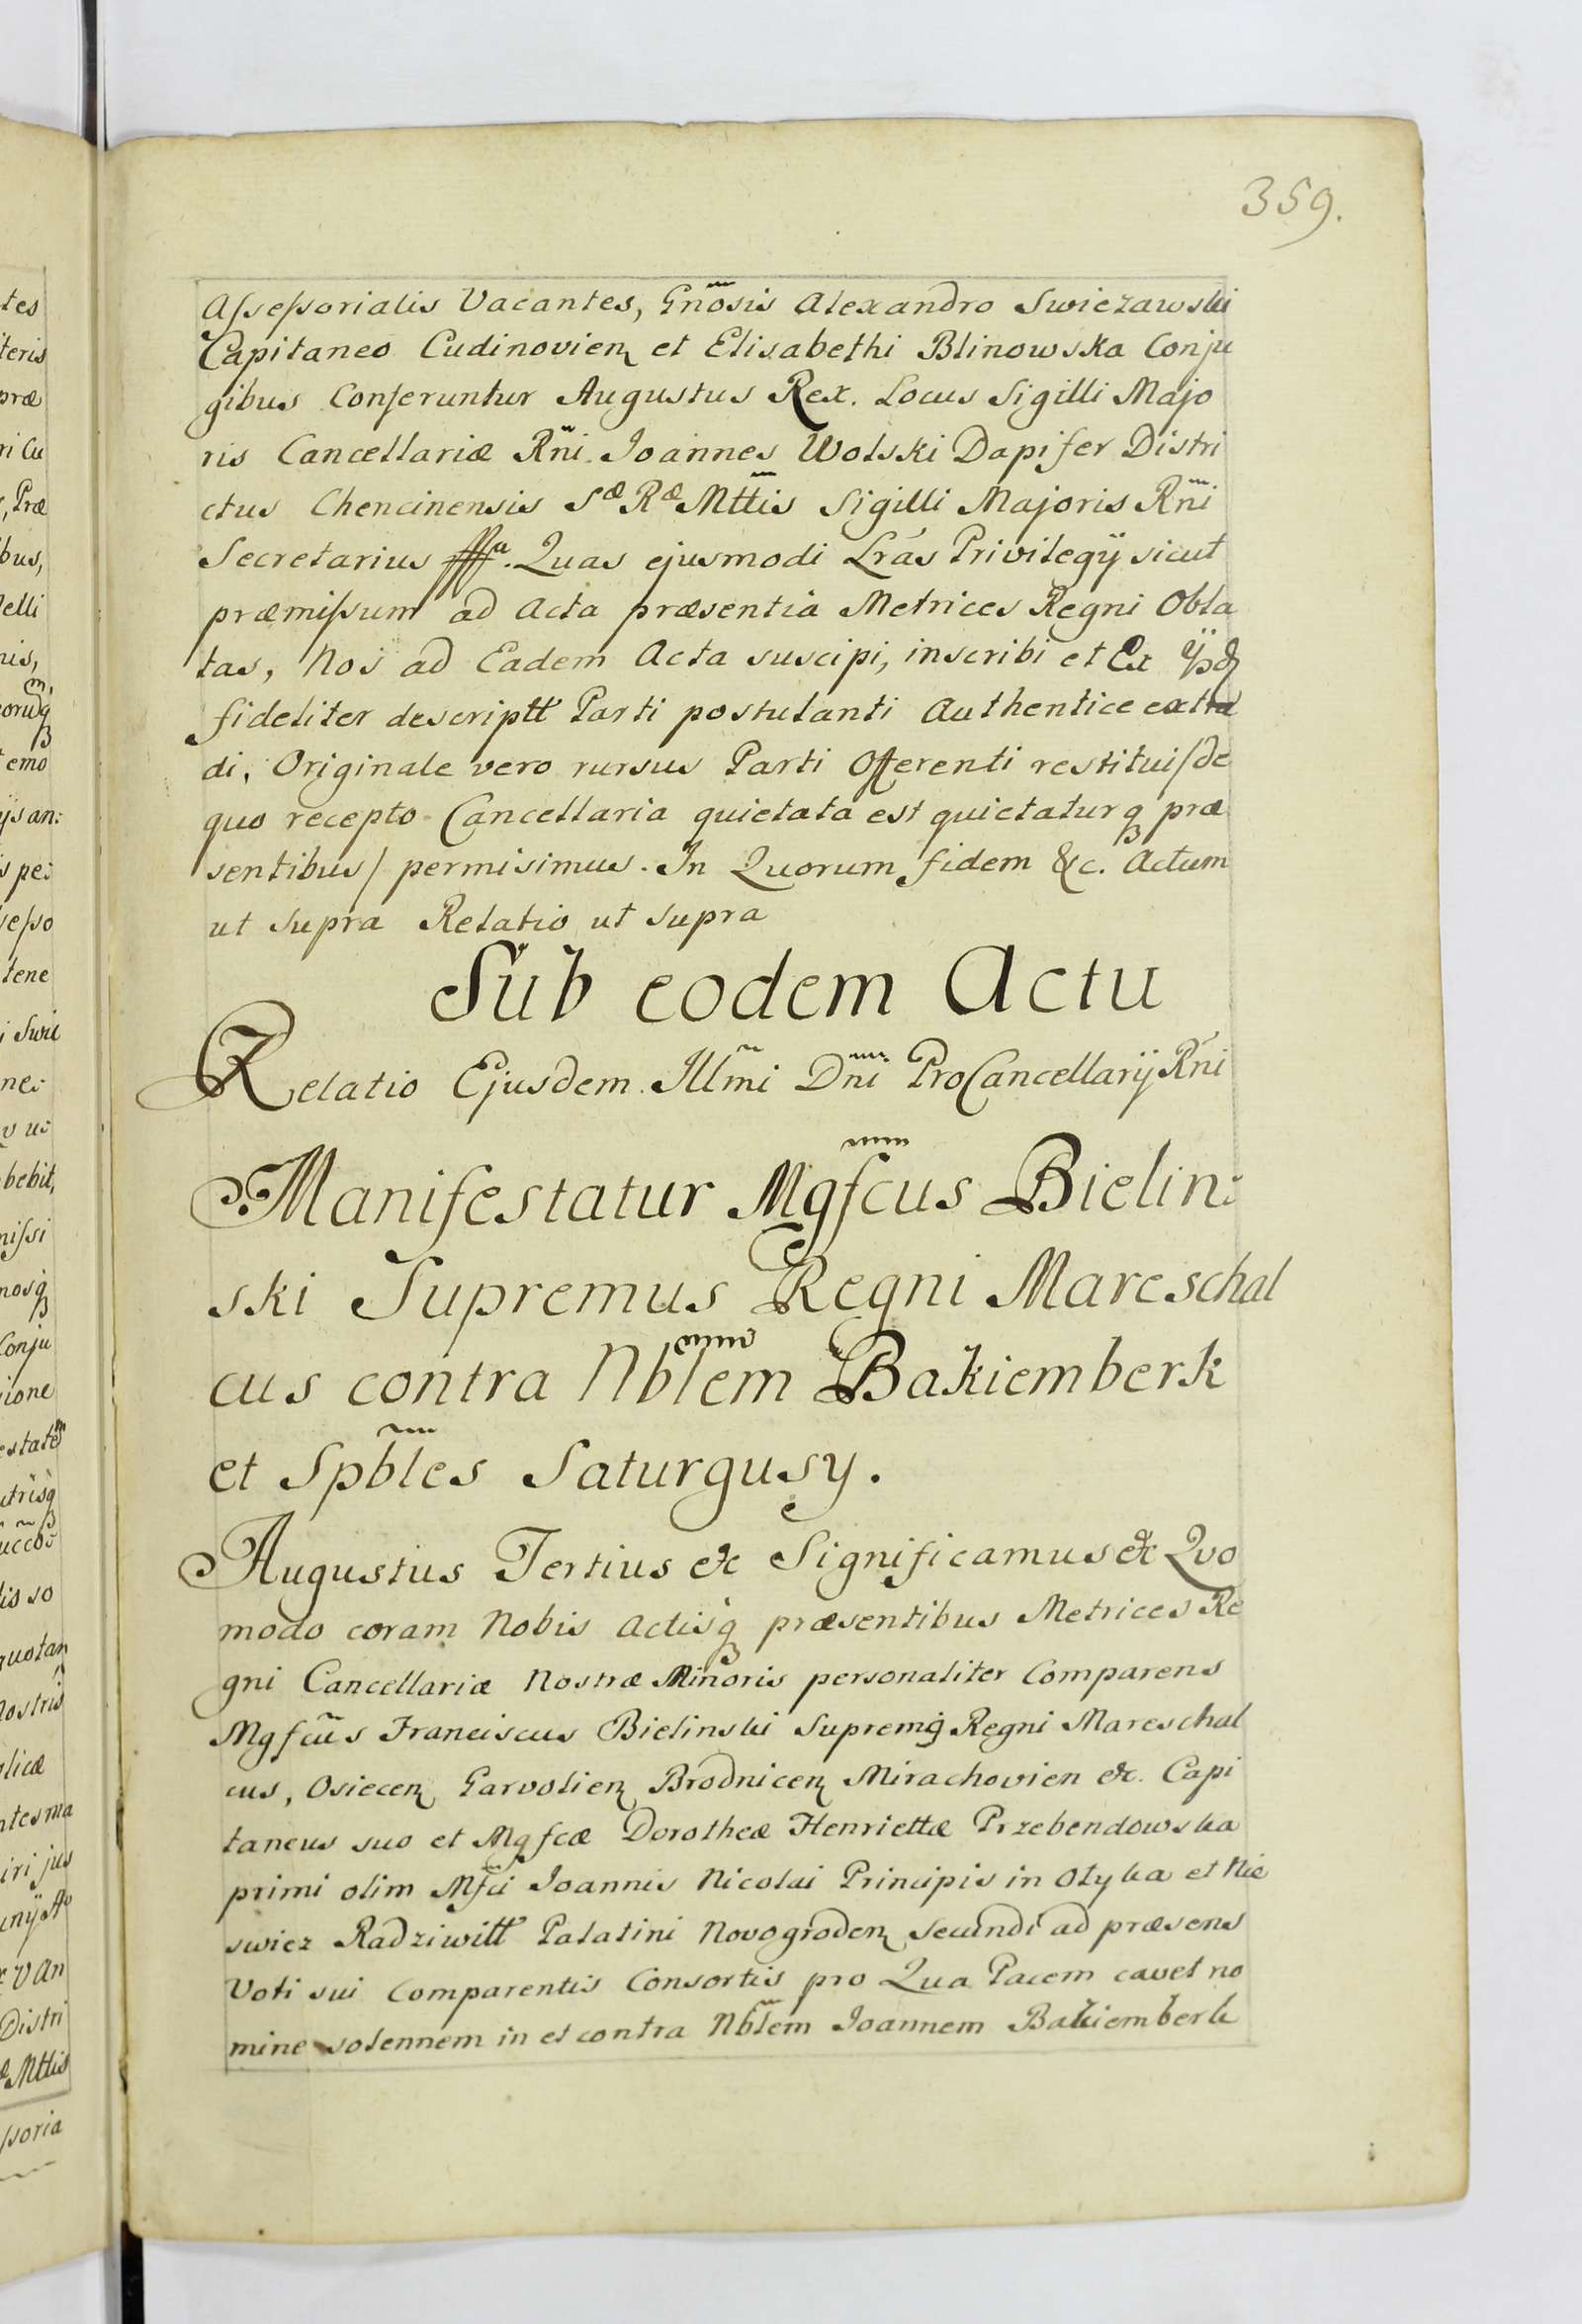 359.
Assessorialis Vacantes, Gnosis Alexandro Swiezawski
Capitaneo Cudinovien et Elisabethi Blinowska Conju
gibus Conferuntur Augustus Rex. Locus Sigilli Majo
ris Cancellariæ Rñi Joannes Wolski Dapifer Distri
ctus Chencinensis Sæ Ræ Mttis Sigilli Majoris Rñi
Secretarius Quas ejusmodi Lrás Privilegÿ sicut
præmissum ad Acta præsentia Metrices Regni Obla
tas, Nos ad Eadem Acta suscipi, inscribi et Ex
fideliter descriptt Parti postulanti Authentice extra
di, Originale vero rursus Parti Offerenti restitui /de
quo recepto Cancellaria quietata est quietaturq præ
sentibus/ permisimus. In Quorum fidem &c. Actum
ut supra Relatio ut supra
Sub eodem Actu
Relatio Ejusdem Illm̃i Dñi ProCancellarij Rńi
Manifestatur Mgfcus Bielin:
ski Supremus Regni Mareschal
cus contra Nblem Bakiemberk
et Spbles Saturgusy.
Augustus Tertius &c Significamus &c Quo
modo coram Nobis Actisq præsentibus Metrices Re
gni Cancellariæ Nostræ Minoris personaliter Comparens
Mgfcus Franciscus Bielinski Supremq Regni Mareschal
cus, Osiecen Garvolien Brodnicen Mirachovien &c. Capi
taneus suo et Mgfcæ Dorotheæ Henriettæ Przebendowska
primi olim Mfci Joannis Nicolai Principis in Olyka et Nie
swiez Radziwitt Palatini Novogroden secundi ad præsens
Voti sui Comparentis Consortis pro Qua Pacem cavet no
mine solennem in et contra Nblem Joannem Bakiemberk